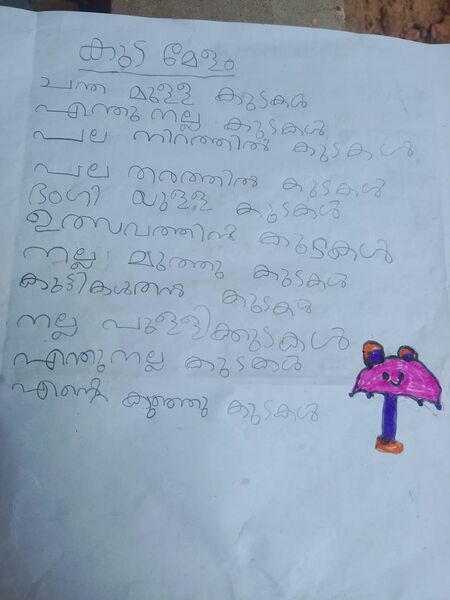 കുട മേളം
ചന്ത മുള്ള കുടകൾ
എന്തു നല്ല കുടകൾ
പല നിറത്തിൽ കുടകൾ
പല തരത്തിൽ കുടകൾ
ഭംഗി യുള്ള കുടകൾ
ഉത്സവത്തിൻ കുടകൾ
നല്ല മുത്തു കുടകൾ
കുട്ടികൾതൻ കുടകൾ
നല്ല പുള്ളിക്കുടകൾ
എന്തു നല്ല കുടകൾ
എൻ്റെ കുഞ്ഞു കുടകൾ